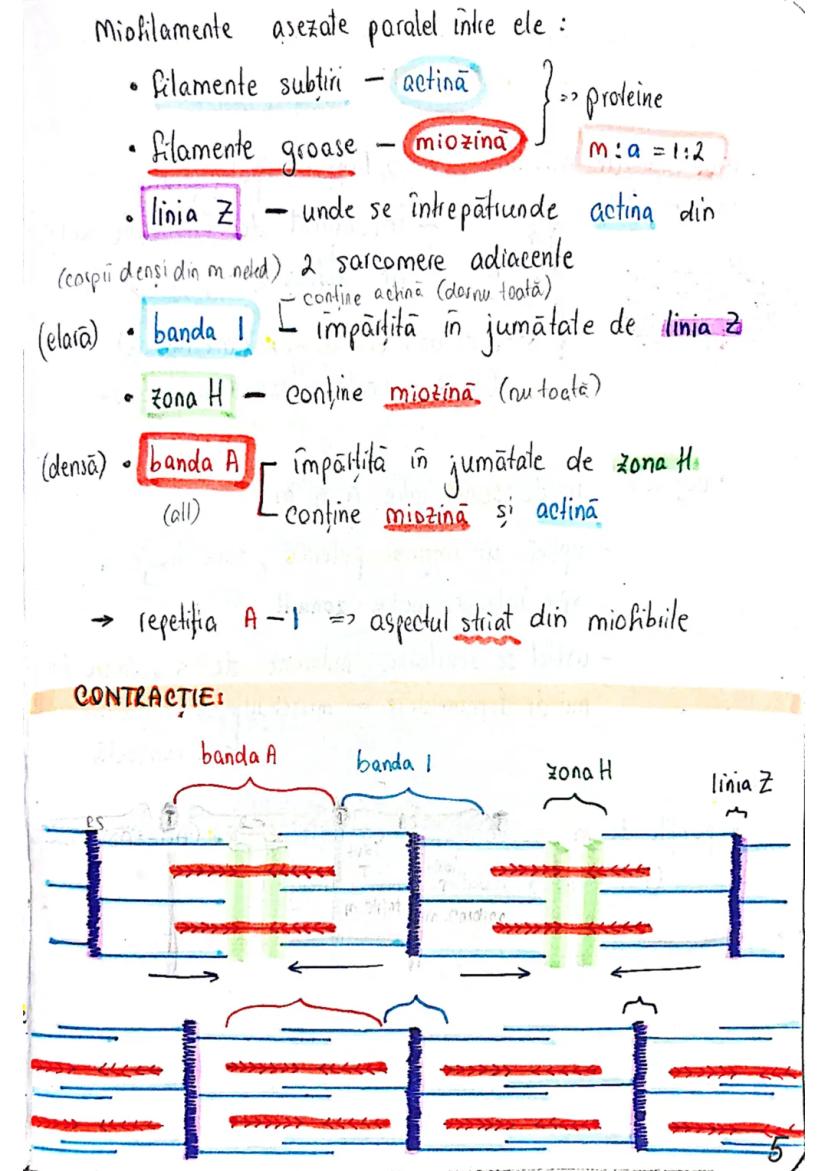 Miofilamente asezate paralel între ele :
• filamente subțiri – actină
=> proteine
• filamente groase – miozină
m : a = 1:2
• linia Z – unde se întrepătrunde actina din
(corpii denși din m. neted) 2 sarcomere adiacente
– conține actină (dar nu toată)
(clară) • banda I – împărțită în jumătate de linia Z
• zona H – conține miozină (nu toată)
(densă) • banda A împărțită în jumătate de zona H
(all) conține miozină și actină
→ repetiția A – I => aspectul striat din miofibrile
CONTRACȚIE:
banda A banda I zona H linia Z
5